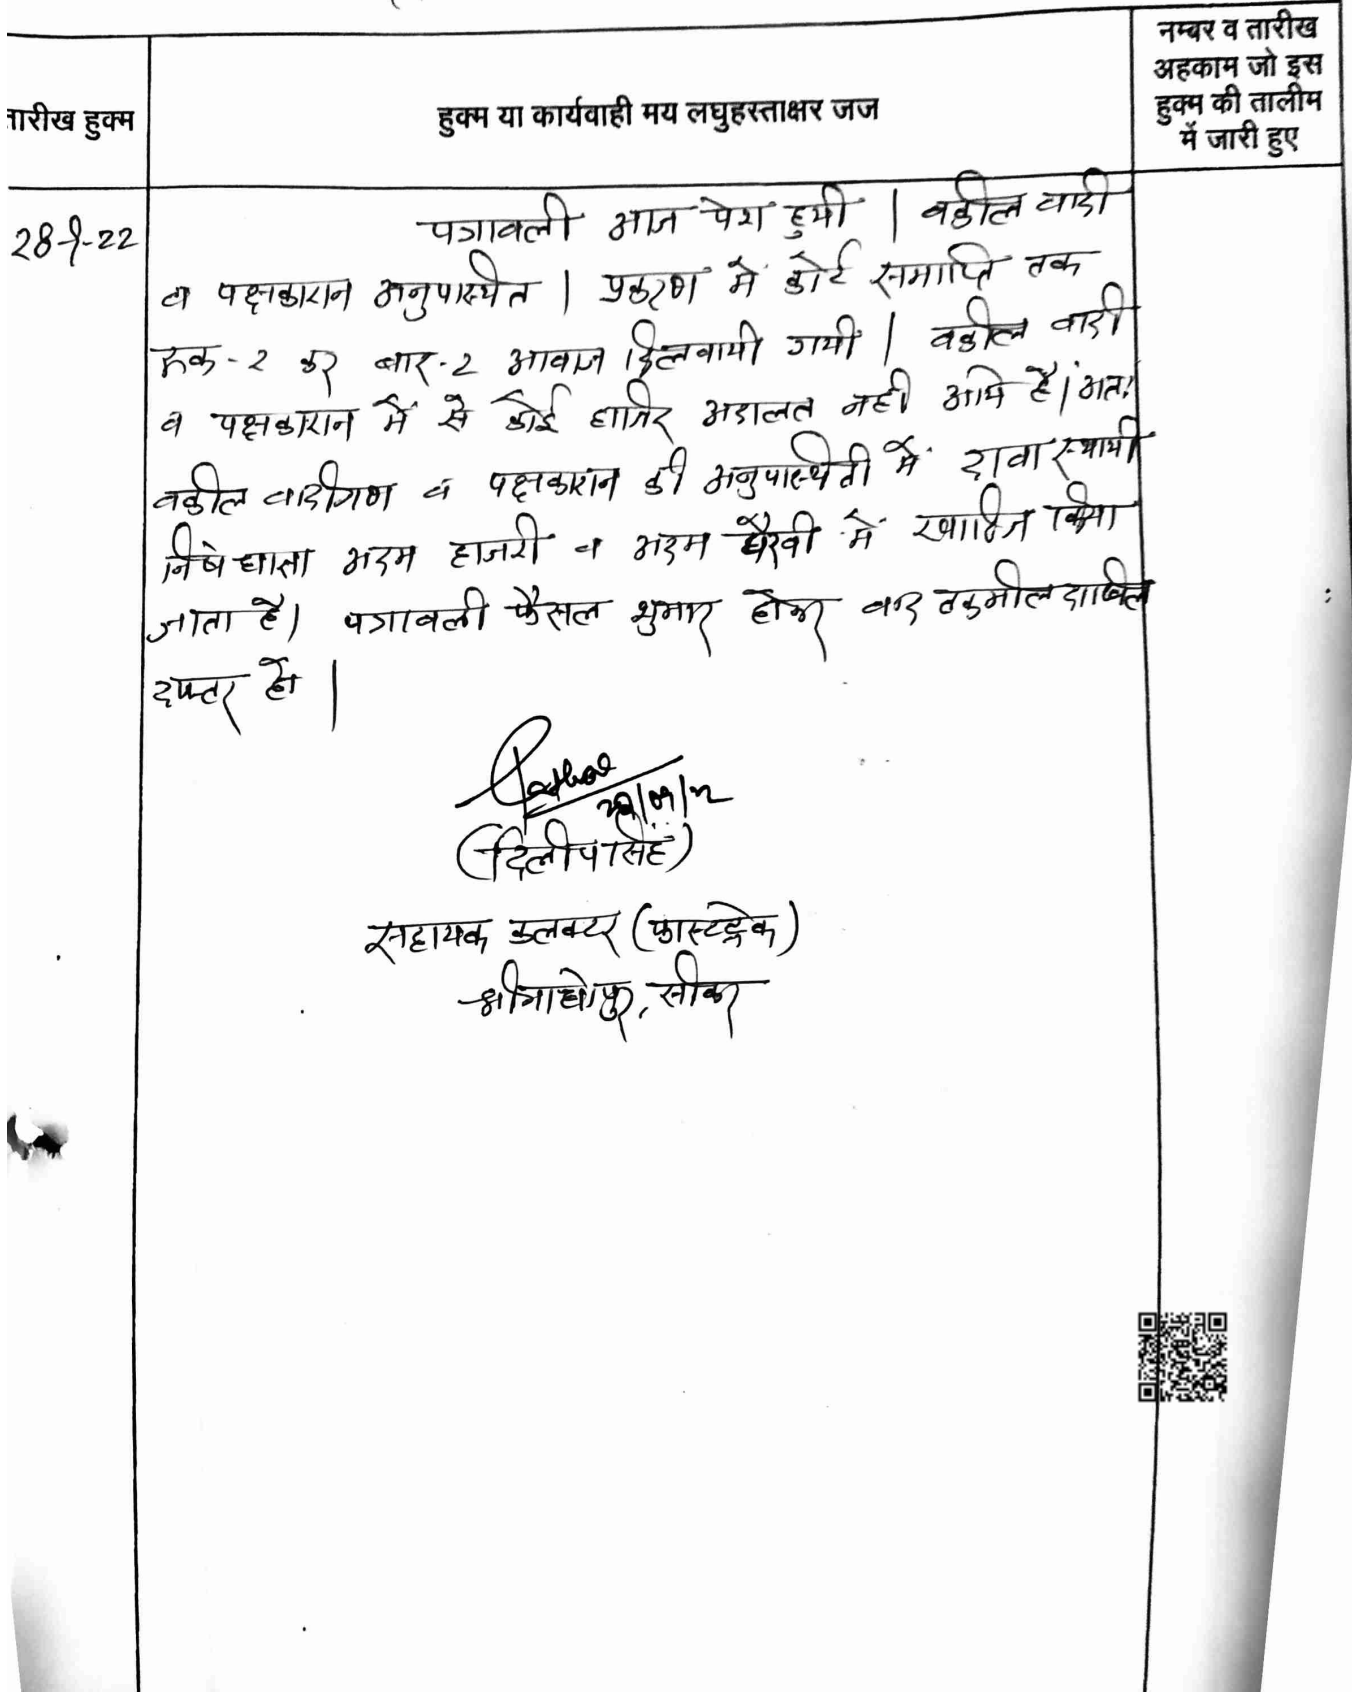 नम्बर व तारीख
अहकाम जो इस
हुक्म की तालीम
में जारी हुए
तारीख हुक्म
हुक्म या कार्यवाही मय लघुहस्ताक्षर जज
28-9-22
पत्रावली आज पेश हुयी | वकील वादी
व पक्षकारान अनुपस्थित | प्रकरण में कोर्ट समाप्ति तक
रूक-2 कर बार-2 आवाज दिलवायी गयी | वकील वादी
व पक्षकारान में से कोई हाजिर अदालत नही आये है। अतः
वकील वादीगण व पक्षकारान की अनुपस्थिती में दावा स्थायी
निषेधाज्ञा अदम हाजरी व अदम पैरवी में खारिज किया
जाता है। पत्रावली फैसल शुमार होकर बाद तकमील दाखिल
दफ्तर हो |
28/09/22
(दिलीप सिंह)
सहायक कलक्टर (फास्टट्रेक)
श्रीमाधोपुर, सीकर